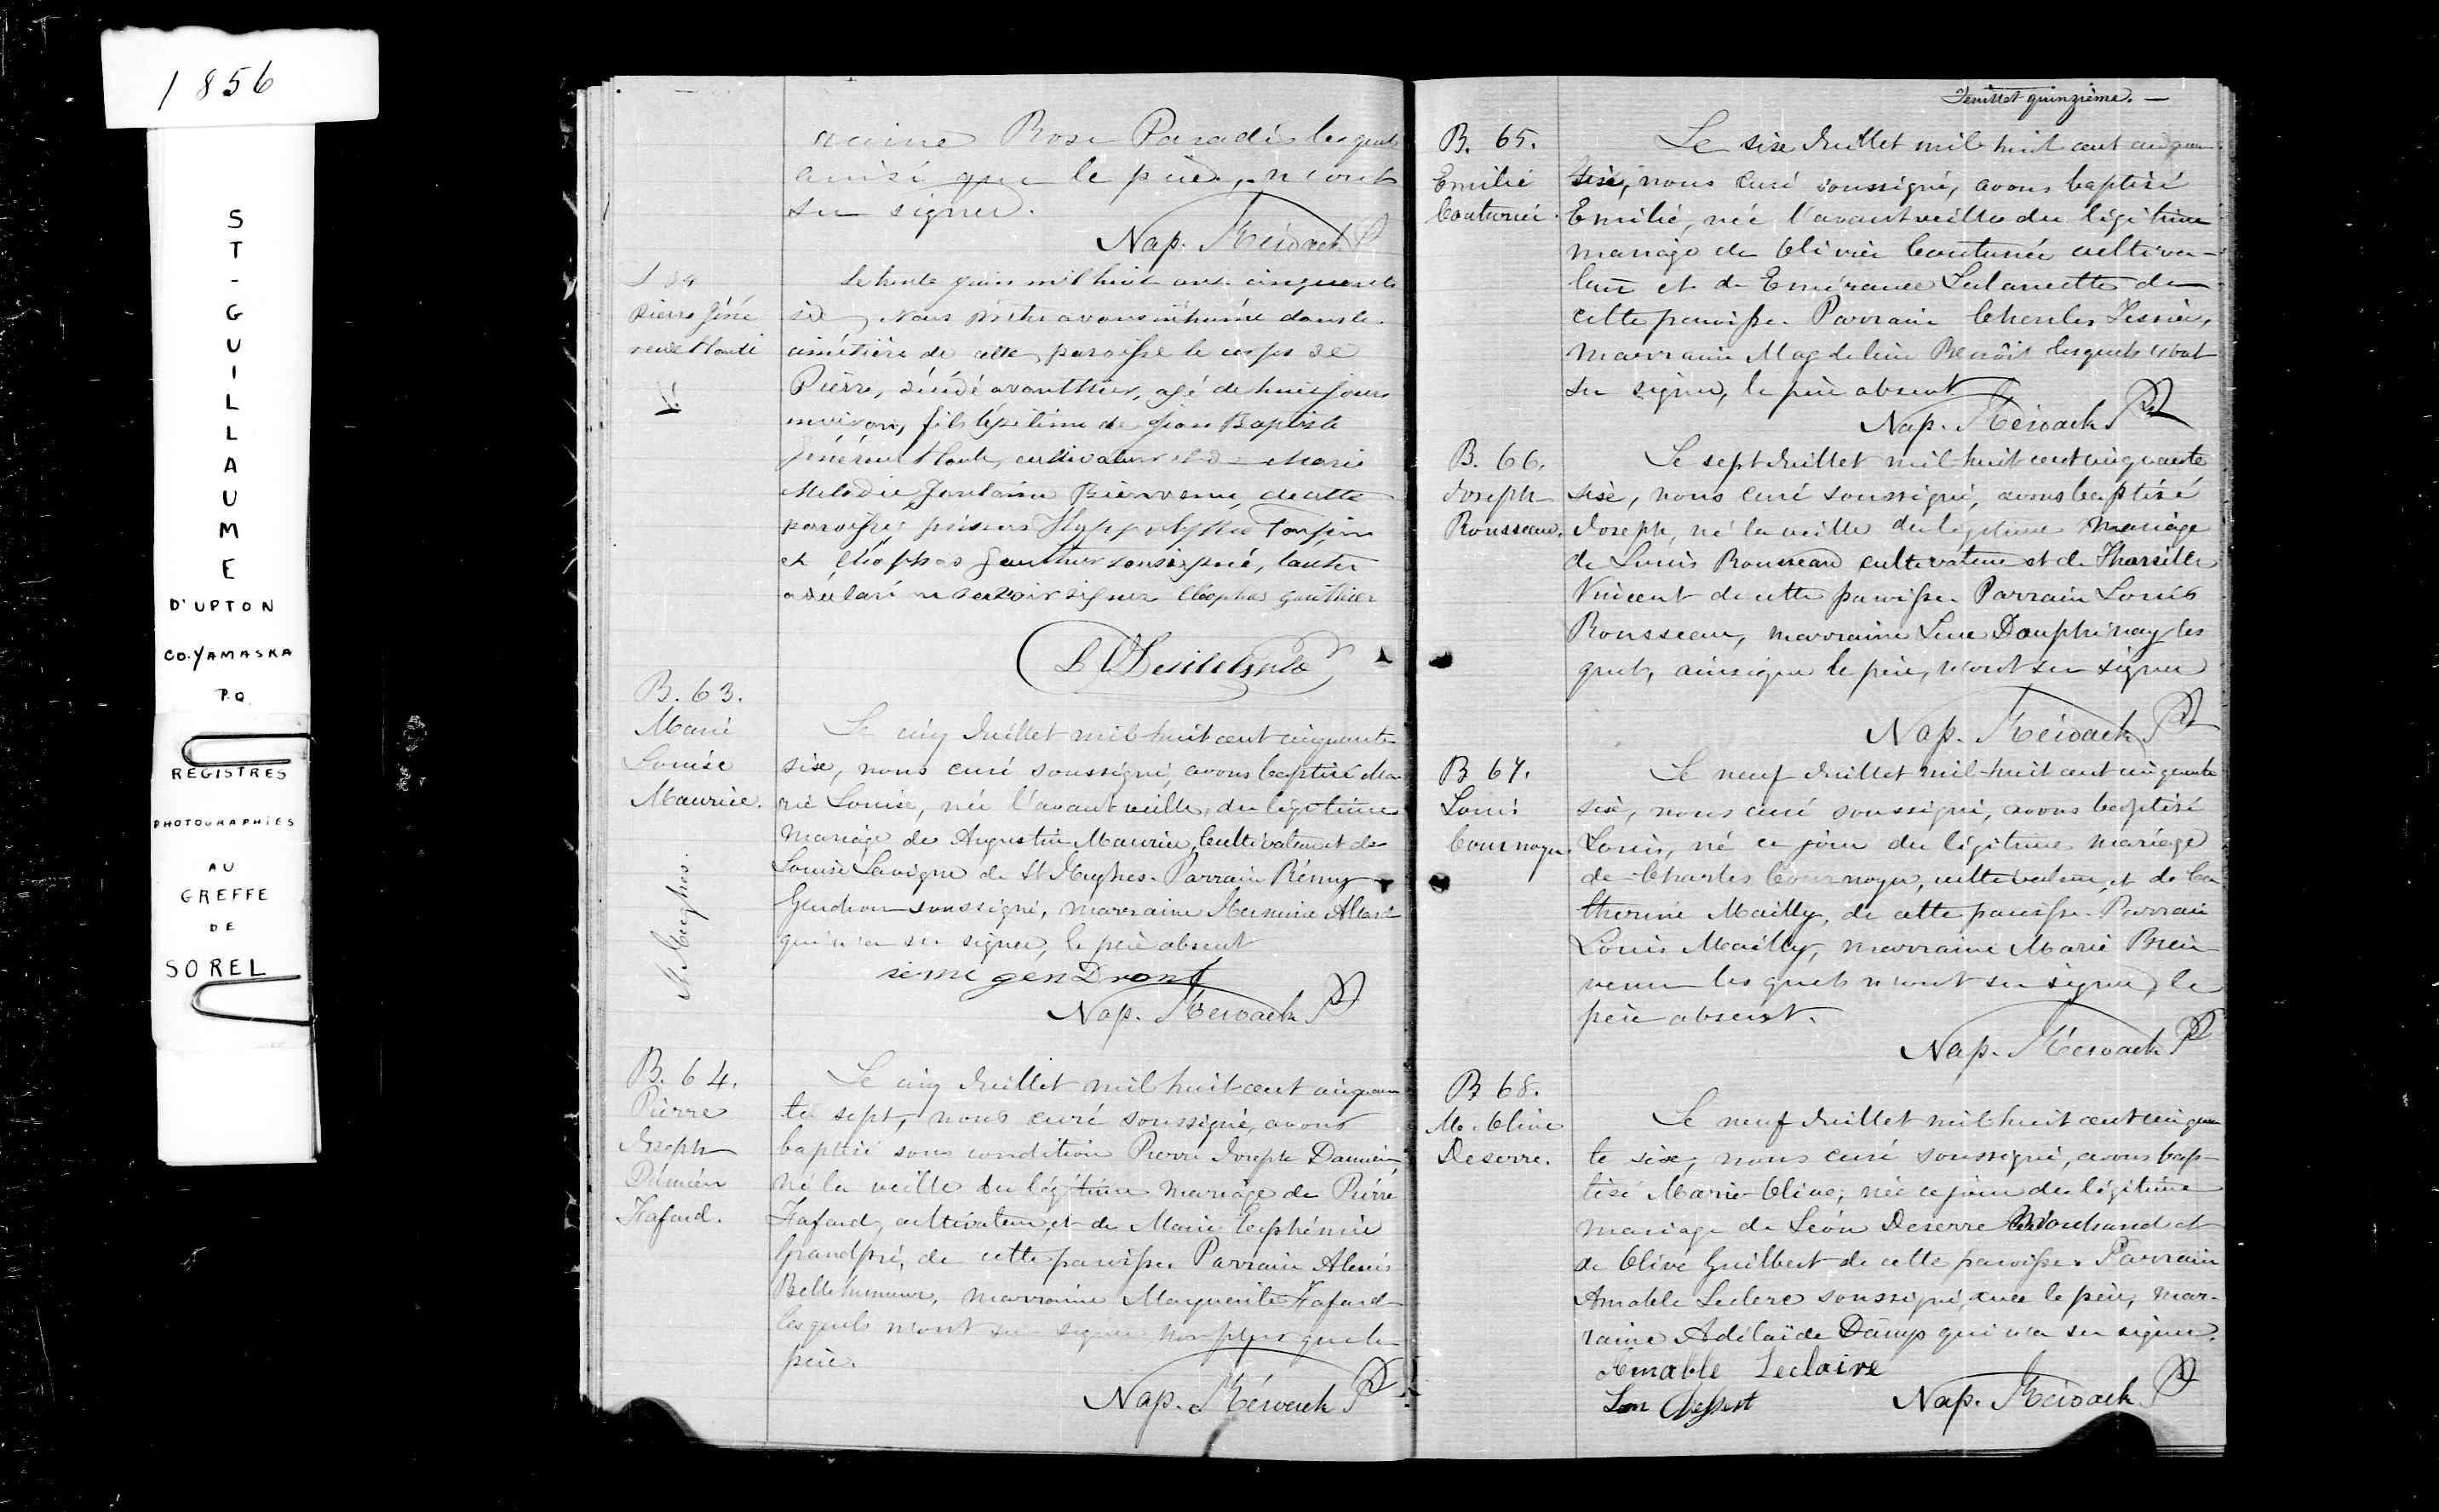 1856
ST-GUILLAUME
D'UPTON
CO. YAMASKA
P.Q.
REGISTRES
PHOTOGRAPHIÉS
AU
GREFFE
DE
SOREL
raine Rose Paradis lesquels
ainsi que le père, n'ont
su signer.
Nap. Kéroack Ptre
Pierre Géné
reux
Le trente juin mil huit cent cinquante
six, Nous prêtre avons inhumé dans le
cimétière de cette paroisse le corps de
Pierre, décédé avanthier, agé de huit jours
environ, fils légitime de Jean Baptiste
Généreux cultivateur et de Marie
Mélodie Fontaine Bienvenu, de cette
paroisse; présens Hyppolythe
et Cléophas Gauthier soussigné, l'autre
a déclaré ne savoir signer Cléophas Gauthier
B. 63.
Marie
Louise
Maurice.
St Hugues.
Le cinq Juillet mil huit cent cinquante
six, nous curé soussigné, avons baptisé Ma
rie Louise, née l'avant veille, du légitime
mariage de Augustin Maurice, Cultivateur et de
Louise Lavigne de St Hugues. Parrain Rémy
Gendron soussigné, marraine Hermine
qui n'a su signer, le père absent
rémi genDront
Nap. Kéroack Ptre
B. 64.
Pierre
Joseph
Damien
Hafard.
Le cinq Juillet mil huit cent cinquan
te sept, nous curé soussigné, avons
baptisé sous condition Pierre Joseph Damien,
né la veille du légitime mariage de Pierre
Hafard, cultivateur, et de Marie Euphémie
Grandpré, de cette paroisse. Parrain Alexis
Bellehumeur, marraine Marguerite Hafard
lesquels n'ont su signer non plus que le
père.
Nap. Kéroack Ptre
Feuillet quinzième. —
B. 65.
Emilie
Couturier.
Le six Juillet mil huit cent cinquan
six, nous curé soussigné, avons baptisé
Emilie, née l'avant veille du légitime
mariage de Olivier Couturier cultiva-
teur et de Emérance de
cette paroisse. Parrain Charles Tessier,
marraine Magdeleine Benoît lesquels n'ont
su signer, le père absent
Nap. Kéroack Ptre
B. 66.
Joseph
Rousseau.
Le sept Juillet mil huit cent cinquante
six, nous curé soussigné, avons baptisé
Joseph, né la veille du légitime mariage
de Louis Rousseau cultivateur et de Tharsille
Vincent de cette paroisse. Parrain Louis
Rousseau, marraine Luce Dauphinay les
quels, ainsi que le père, n'ont su signer
Nap. Kéroack Ptre
B 67.
Louis
Cournoyer.
Le neuf Juillet mil-huit cent cinquante
six, nous curé soussigné, avons baptisé
Louis, né ce jour du légitime mariage
de Charles Cournoyer, cultivateur, et de Ca
therine Mailly, de cette paroisse. Parrain
Louis Mailly, marraine Marie Bien
venu lesquels n'ont su signer, le
père absent.
Nap. Kéroack Ptre
B 68.
M. Olive
Deserre.
Le neuf Juillet mil huit cent cinquan
te six, nous curé soussigné, avons bap-
tisé Marie-Olive, née ce jour du légitime
mariage de Léon Deserre Marchand et
de Olive Guilbert de cette paroisse. Parrain
Amable Leclerc soussigné, avec le père, mar-
raine Adélaïde Damp qui n'a su signer.
Amable Leclaire
Nap. Kéroack Ptre